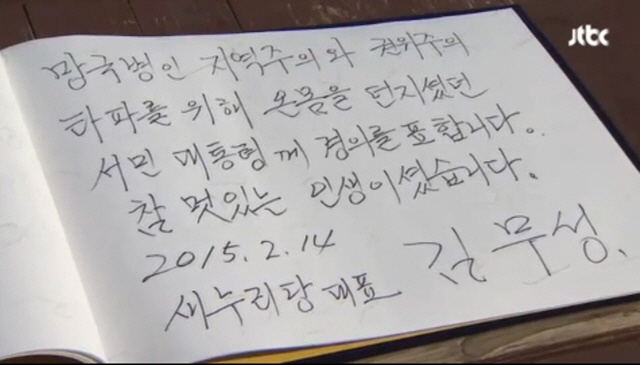 jtbc
망국병인 지역주의와 권위주의
타파를 위해 온몸을 던지셨던
서민 대통령께 경의를 표합니다.
참 멋있는 인생이셨습니다.
2015. 2. 14
새누리당 대표 김무성.